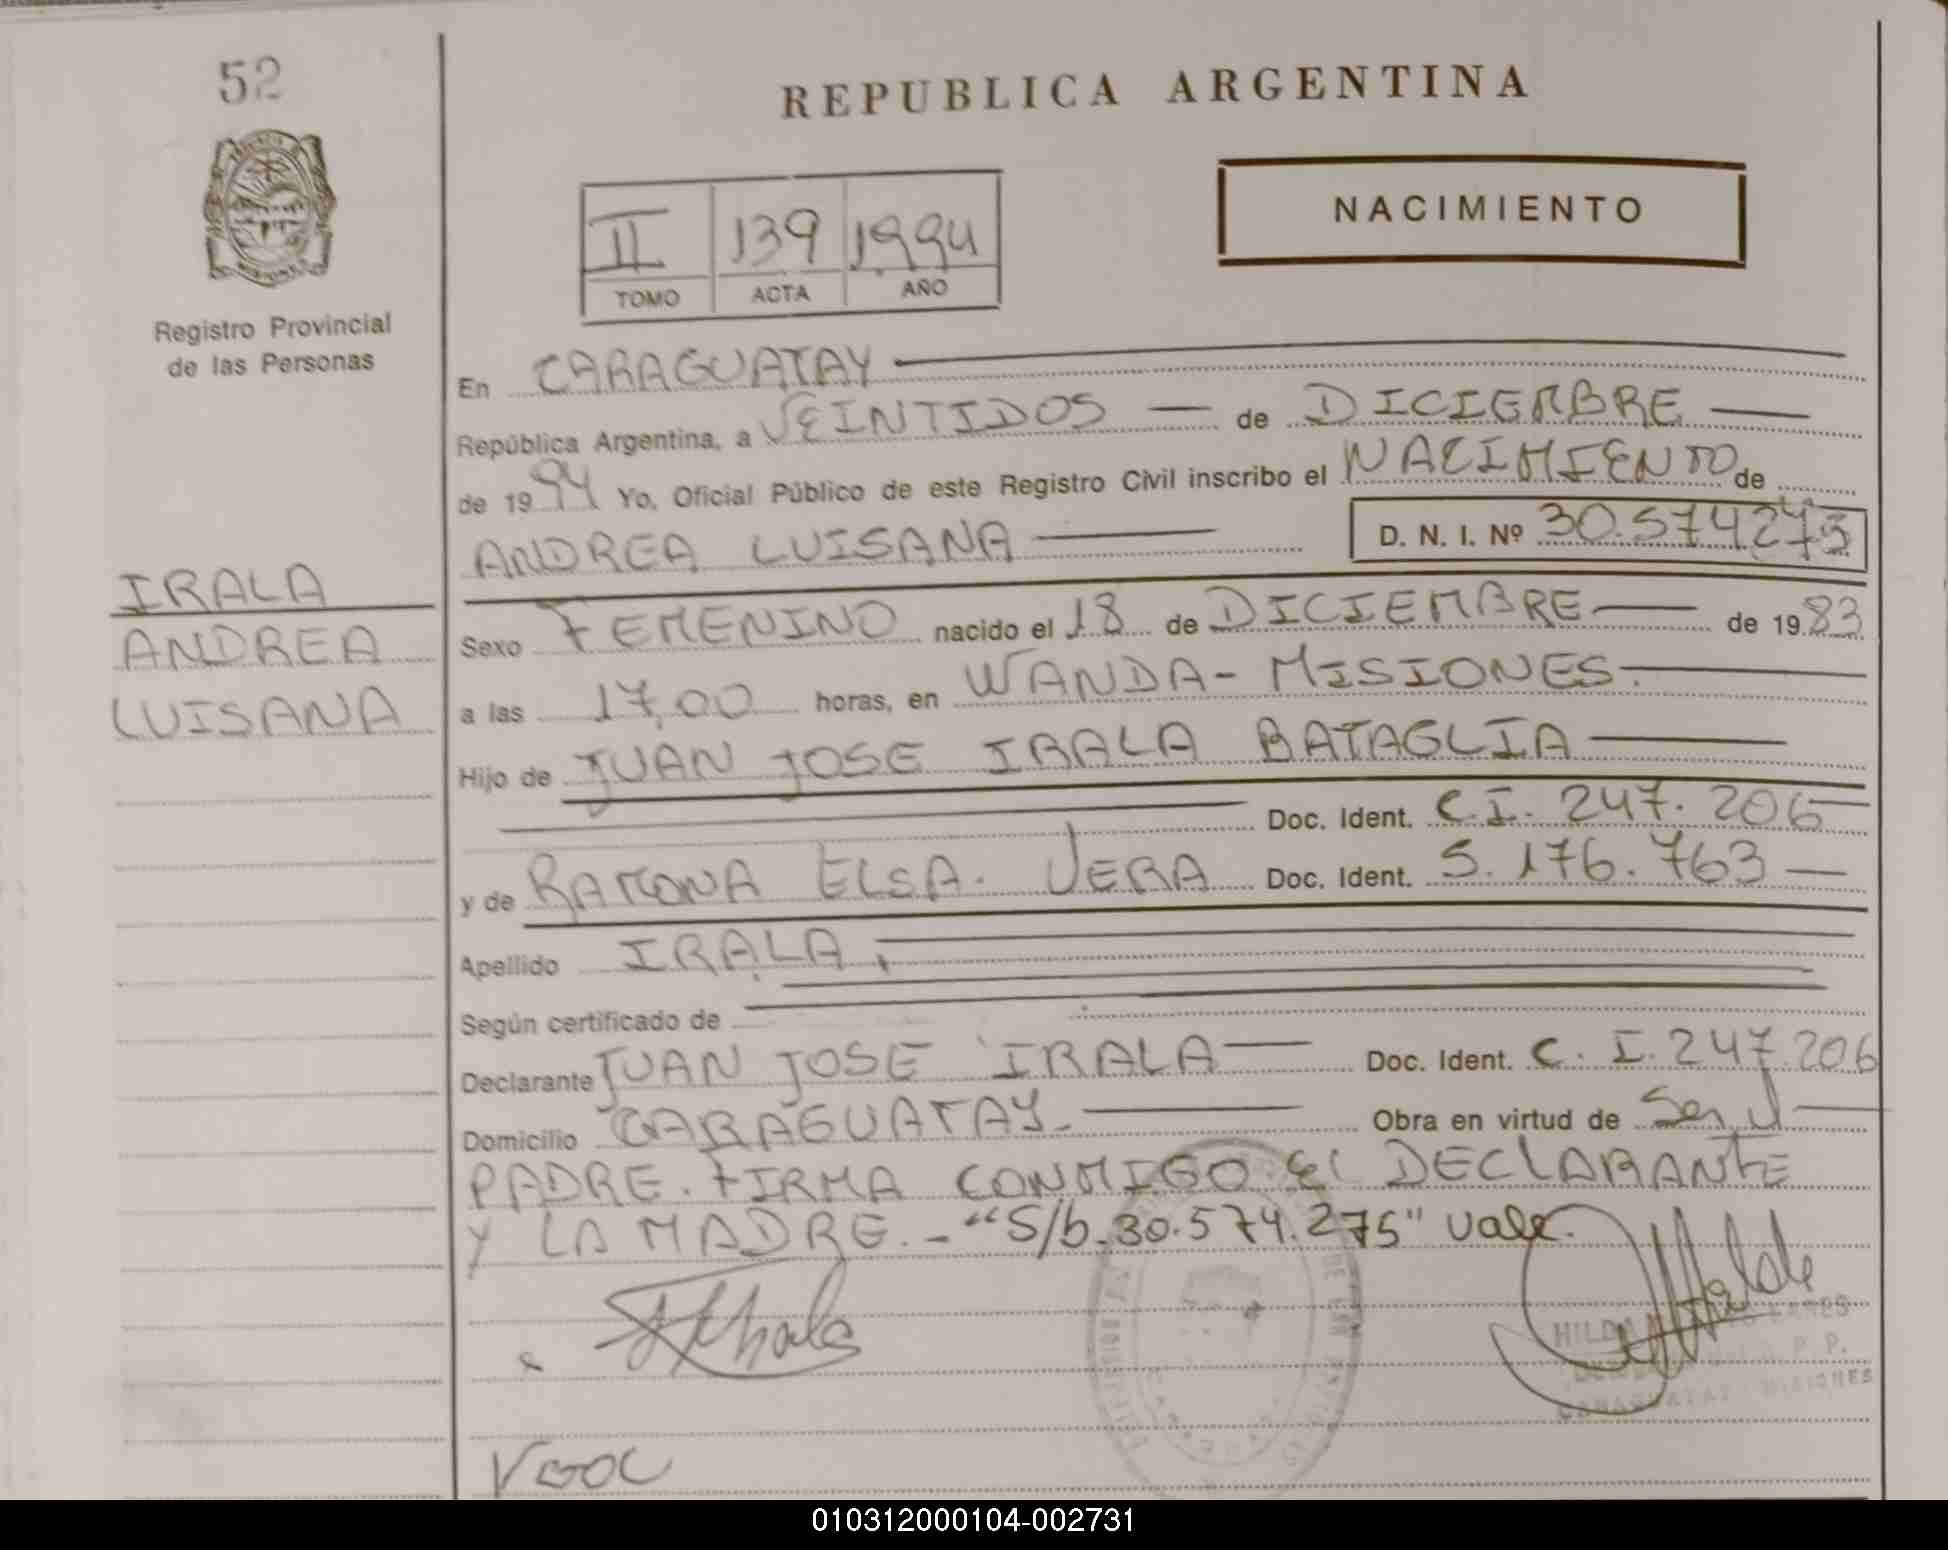 52
REPUBLICA ARGENTINA
NACIMIENTO
II 139 1994
TOMO ACTA AÑO
Registro Provincial
de las Personas
En CARAGUATAY
República Argentina, a VEINTIDOS de DICIEMBRE
de 1994 Yo, Oficial Público de este Registro Civil inscribo el NACIMIENTO de
ANDREA LUISANA D. N. I. Nº 30.574275
IRALA
ANDREA
LUISANA
Sexo FEMENINO nacido el 18 de DICIEMBRE de 1983
a las 17,00 horas, en WANDA - MISIONES.
Hijo de JUAN JOSE IRALA BATAGLIA
Doc. Ident. C.I. 247.206
y de RAMONA ELSA. VERA Doc. Ident. 5.176.763
Apellido IRALA
Según certificado de
Declarante JUAN JOSE IRALA Doc. Ident. C. I. 247.206
Domicilio CARAGUATAY Obra en virtud de Ser el
PADRE. FIRMA CONMIGO El DECLARANTE
Y LA MADRE. - "S/b. 30.574.275" Vale.
HILDA
CARAGUATAY - MISIONES
010312000104-002731